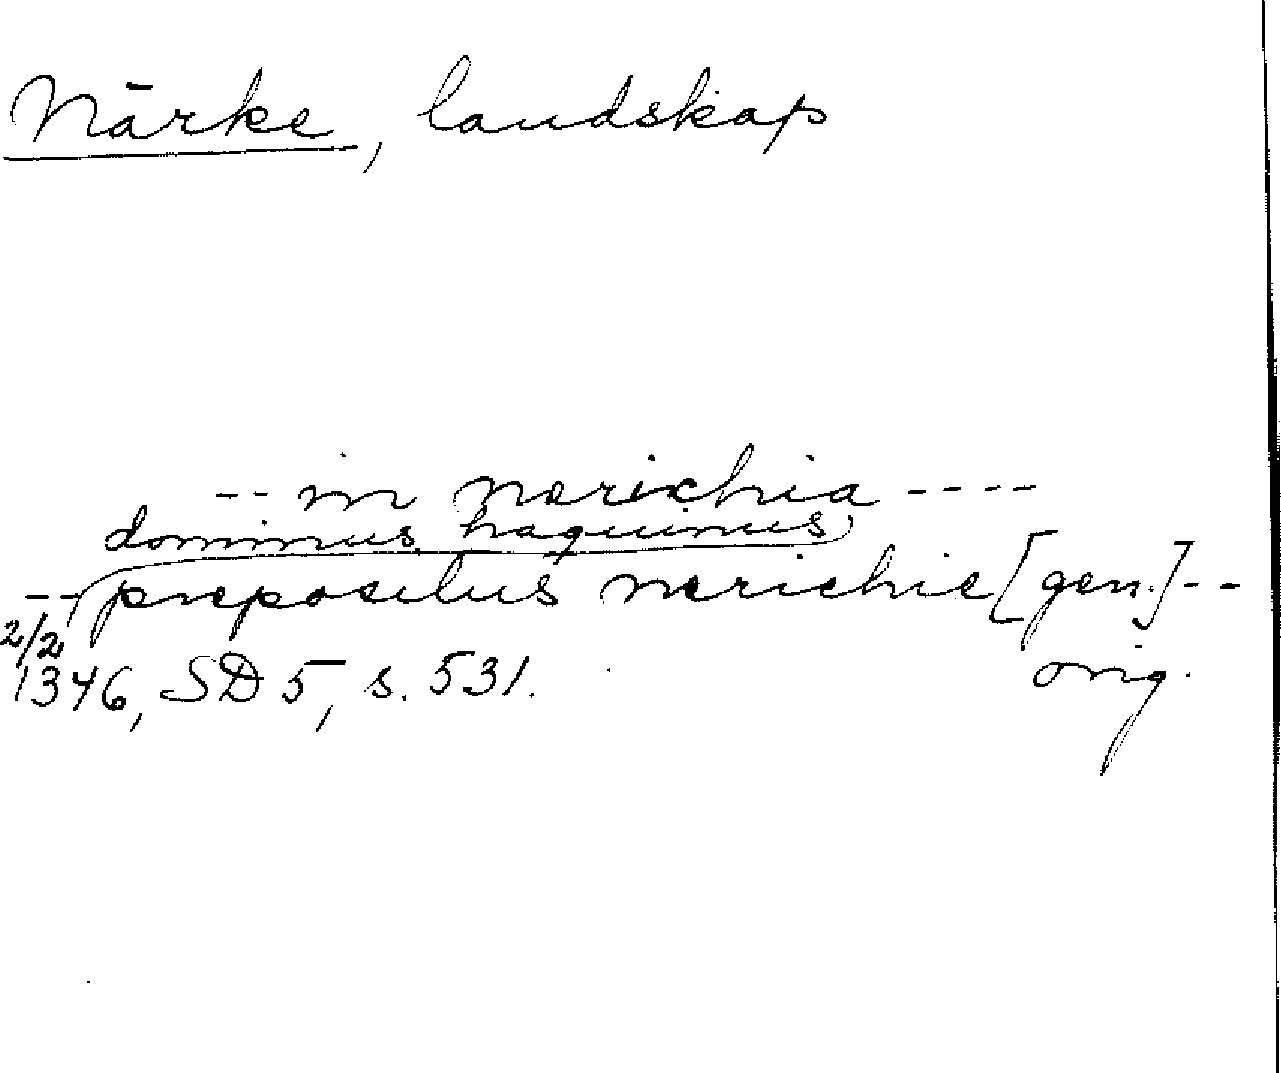 Närke, landskap
-- in nerichia ----
dominus haquinus
-- prepositus nerichie [gen.] --
2/2
1346, SD 5, s. 531.
orig.